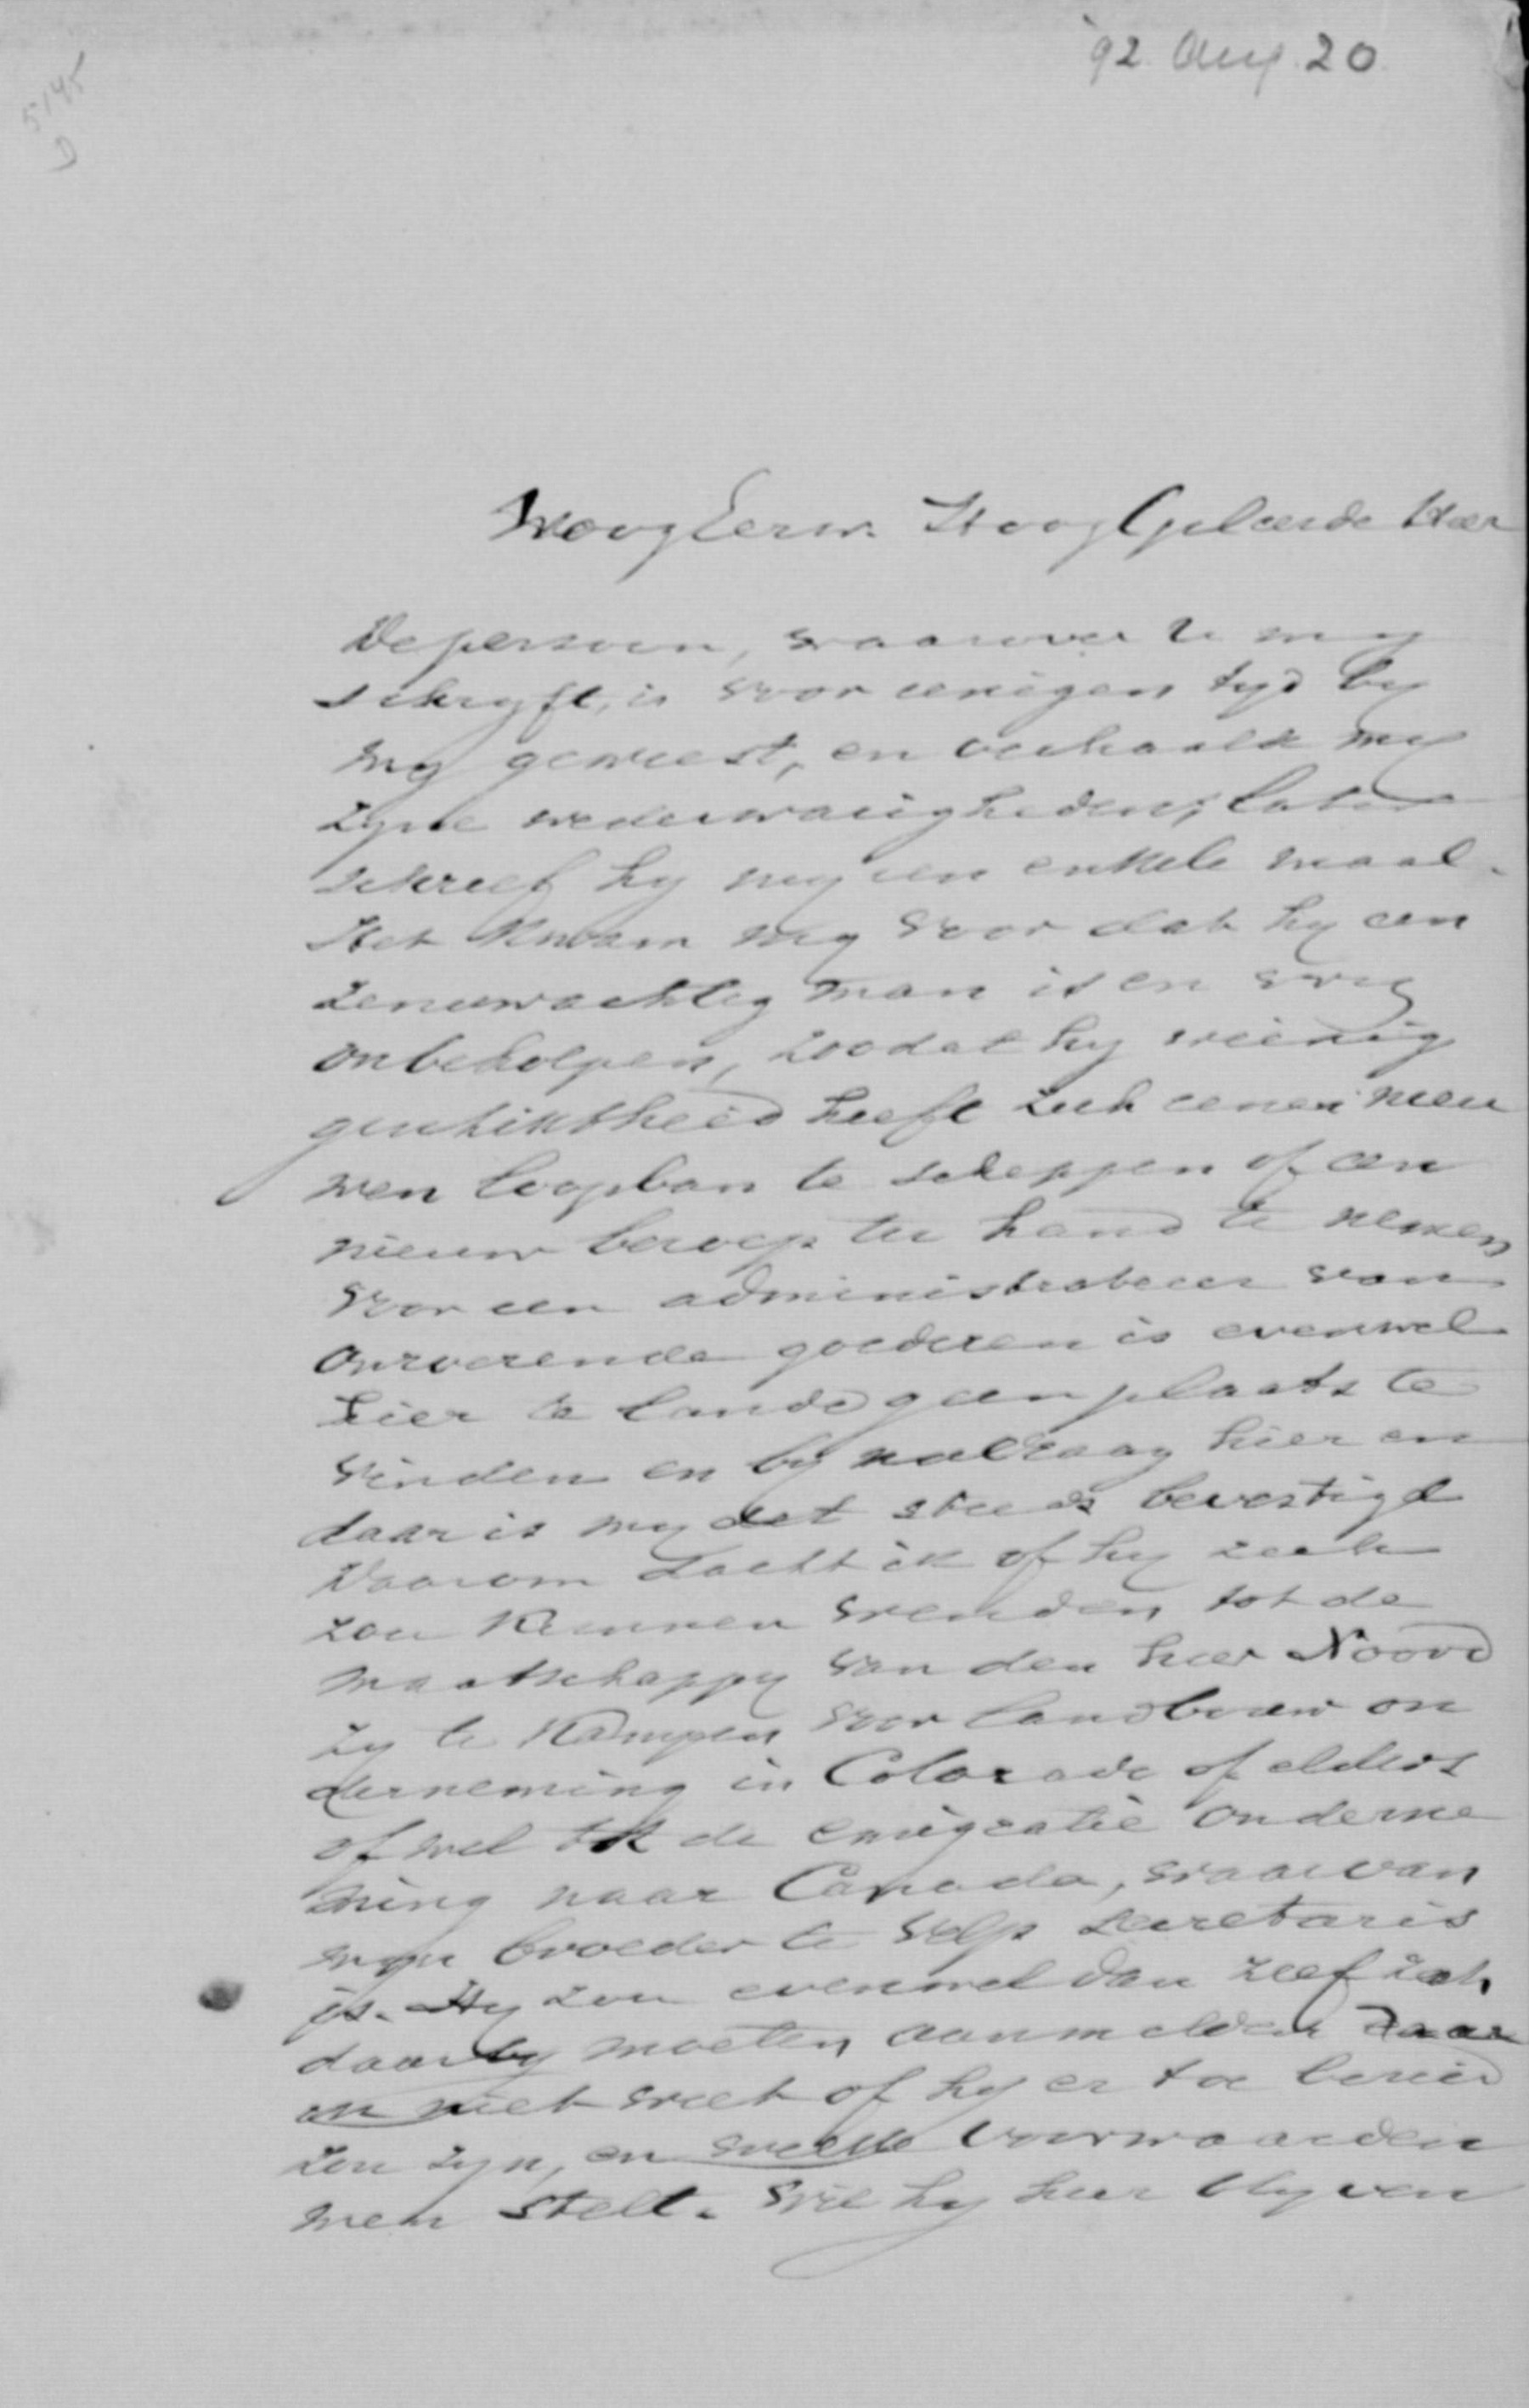 '92 Aug. 20
5145
D
HoogEerw. HoogGeleerde Heer
De persoon, waarover U my
schryft, is voor eenigen tyd by
my geweest, en verhaalde my
zyne wederwaarigheden; later
schreef hy my een enkele maal.
Het kwam my voor dat hy een
zenuwachtig man is en vry
onbeholpen, zoodat hy weinig
geschiktheid heeft zich eenen nieu
wen loopban te scheppen of een
nieuw beroep ter hand te nemen
Voor een administrateur van
onroerende goederen is evenwel
hier te lande geen plaats te
vinden en by navraag hier en
daar is my dat steeds bevestigd
Daarom dacht ik of hy zich
zou kunnen wenden tot de
maatschappy van den heer Noord
zy te Kampen voor landbouw on
derneming in Colorado of elders
of wel tot de emigratie onderne
ming naar Canada, waarvan
myn broeder te Velp secretaris
is. Hy zou evenwel dan zelf zich
daarby moeten aanmelden daar
ik niet weet of hy er toe bereid
zou zyn, en welke voorwaarden
men stelt. Wil hy hier blyven